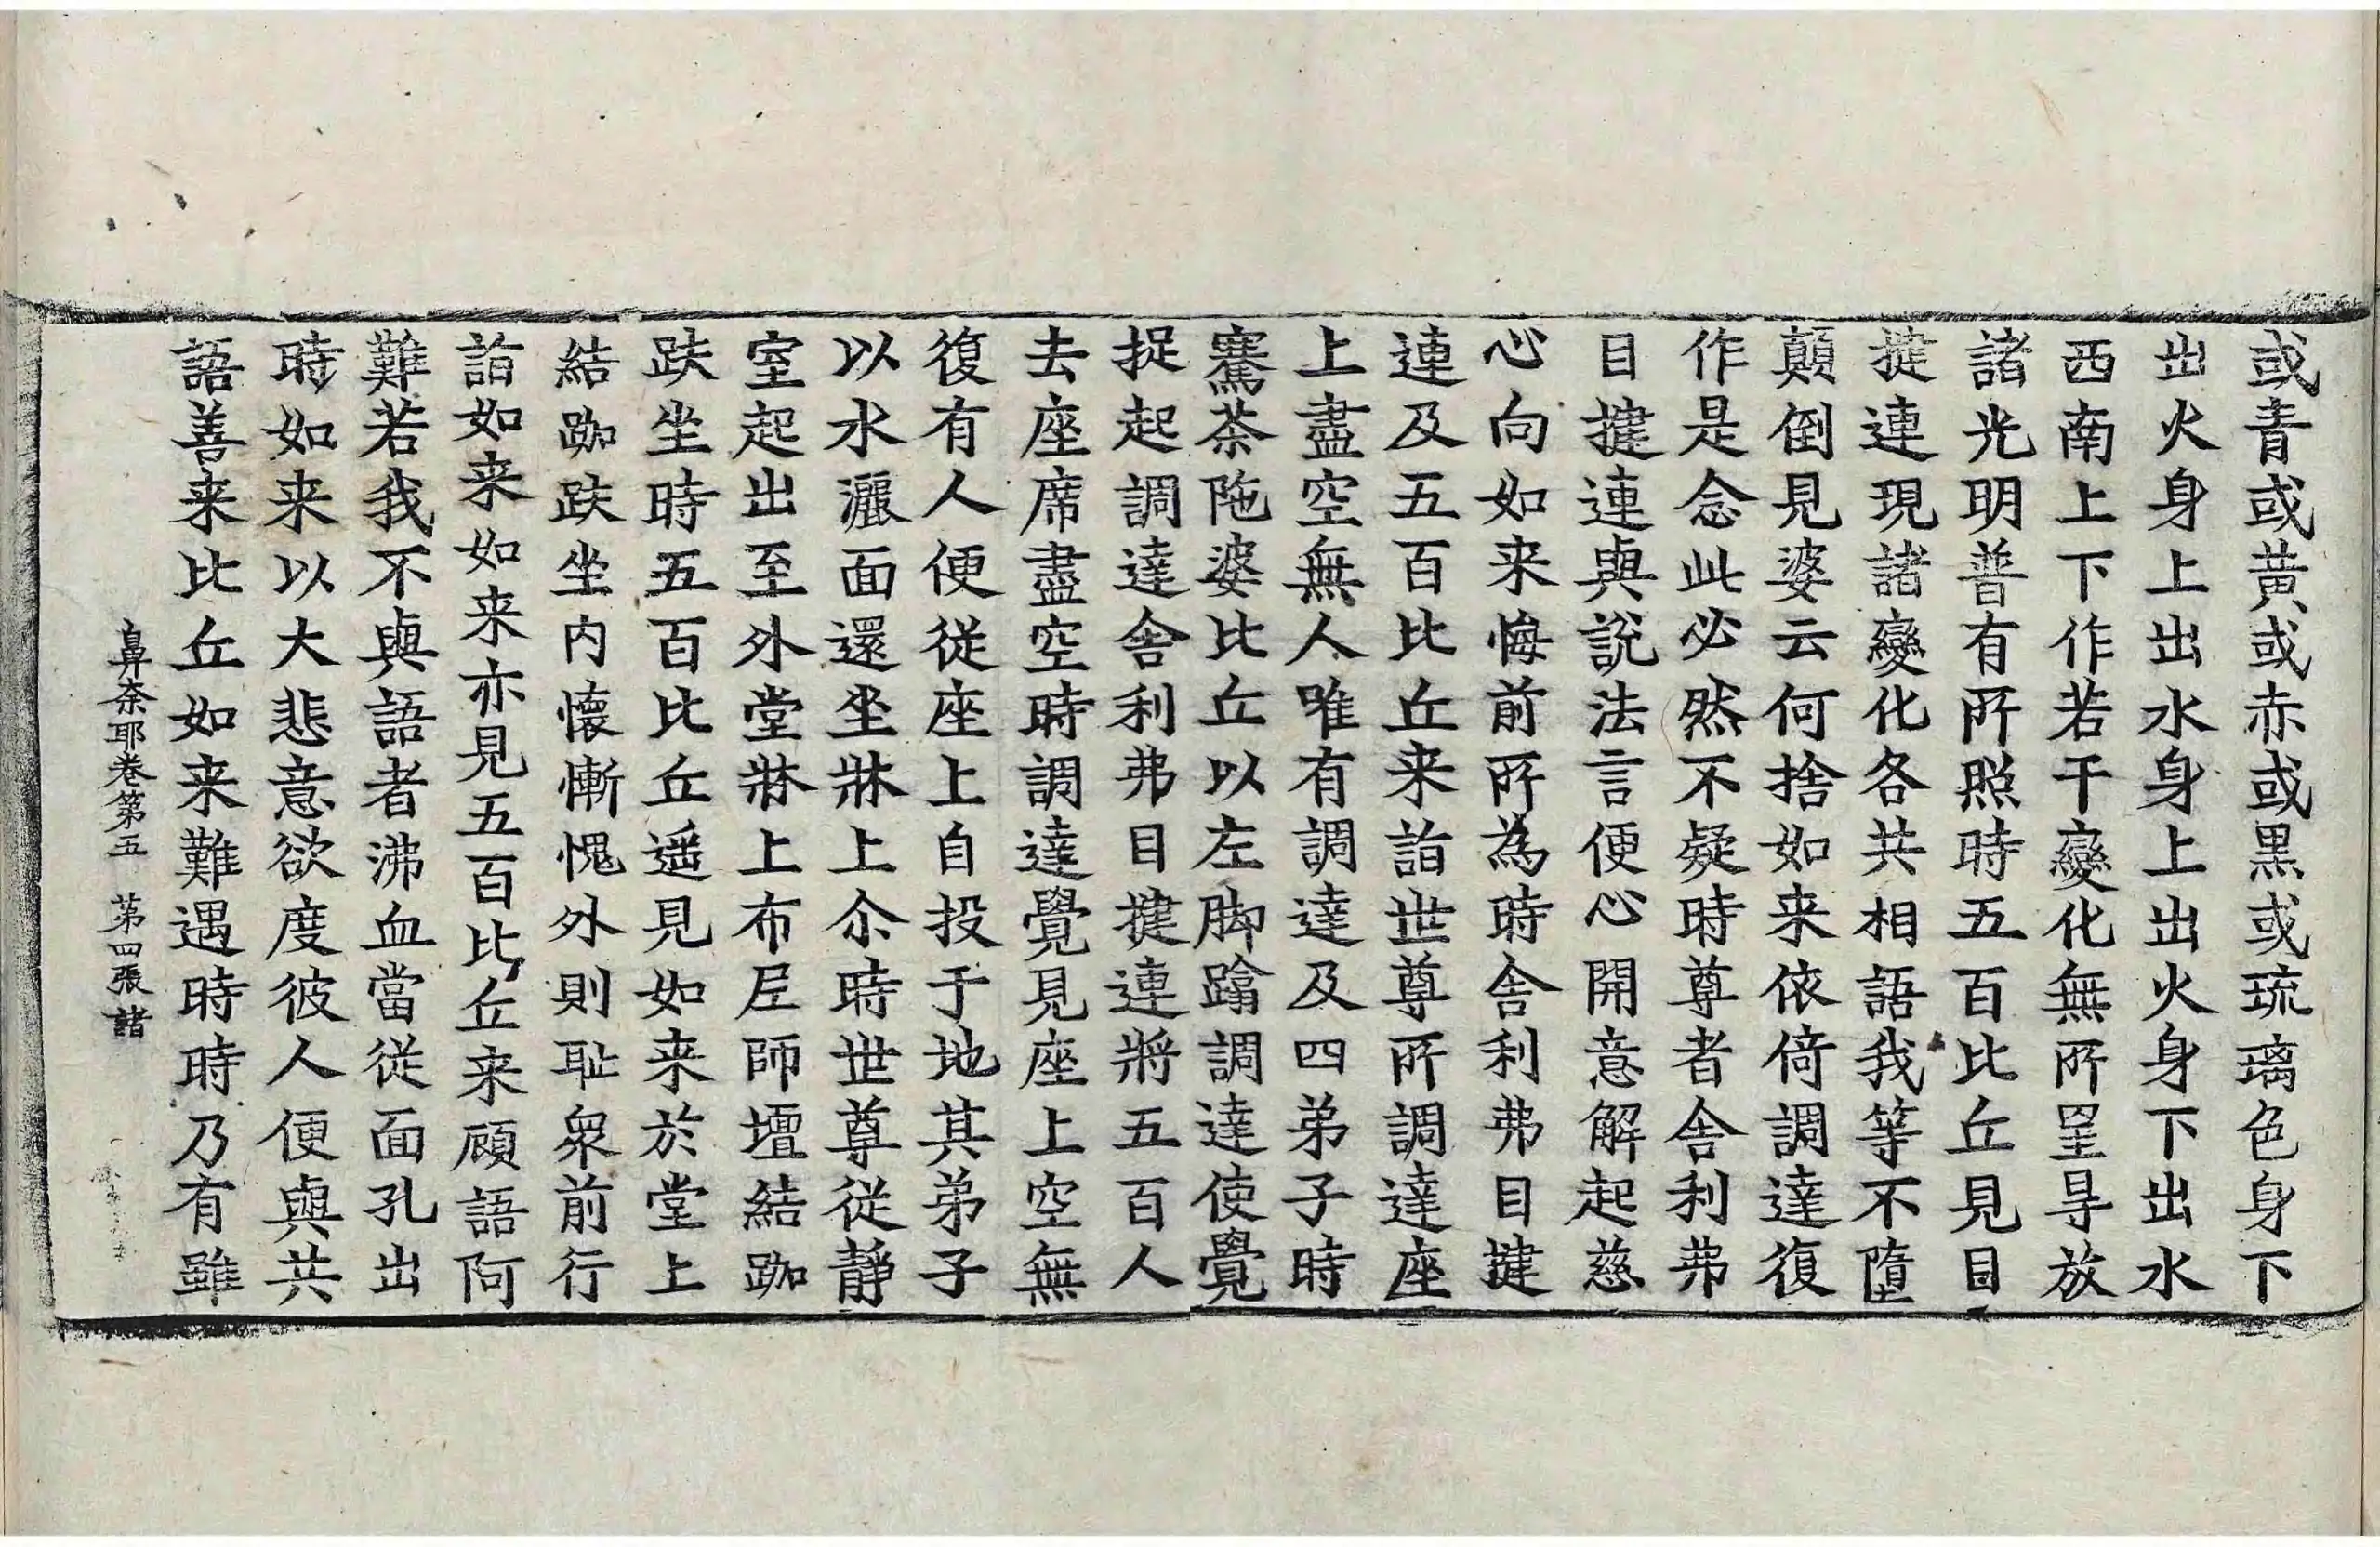 或青或黃或赤或黒或琉璃色身下
出火身上出水身上出火身下出水
西南上下作若干變化無所罣㝵放
諸光明普有所照時五百比丘見目
揵連現諸變化各共相語我等不墮
顛倒見婆云何捨如来依倚調達復
作是念此必然不疑時尊者舎利弗
目揵連與說法言便心開意解起慈
心向如来悔前所為時舎利弗目揵
連及五百比丘来詣世尊所調達座
上盡空無人唯有調達及四弟子時
騫荼陁婆比丘以左脚蹹調達使覺
捉起調達舎利弗目揵連將五百人
去座席盡空時調達覺見座上空無
復有人便従座上自投于地其弟子
以水灑面還坐牀上尒時世尊従静
室起出至外堂牀上布𡰱師壇結跏
趺坐時五百比丘遥見如来於堂上
結跏趺坐内懷慚愧外則耻衆前行
詣如来如来亦見五百比丘来顧語阿
難若我不與語者沸血當従面孔出
時如来以大悲意欲度彼人便與共
語善来比丘如来難遇時時乃有雖
鼻奈耶卷第五　第四張　諸